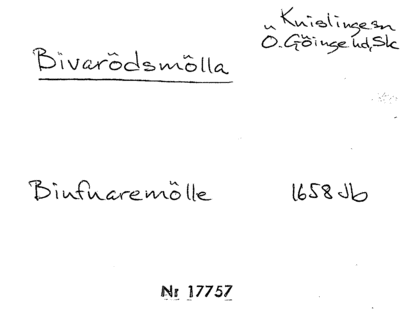 Knislinge sn
Ö. Göinge hd, Sk
Bivarödsmölla
Binfnaremölle 1658 Jb
Nr 17757